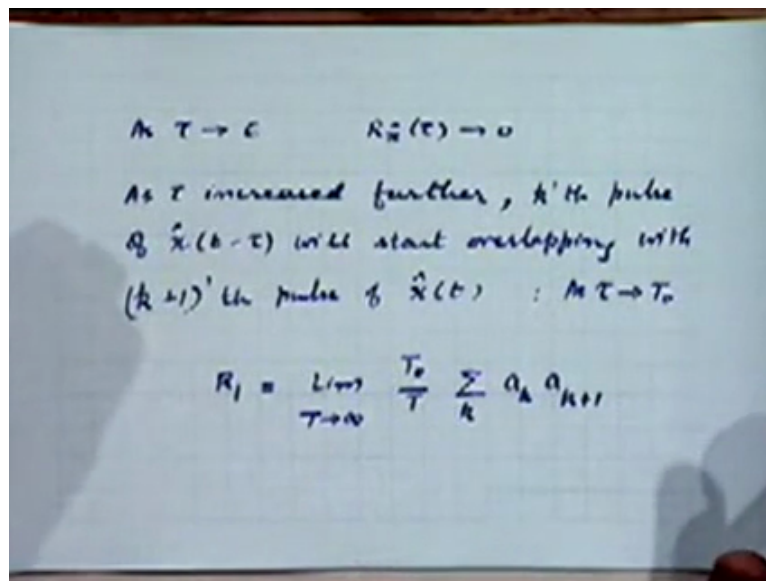 As τ → ε R_x̂(τ) → 0
As τ increased further, k'th pulse
of x̂(t - τ) will start overlapping with
(k+1)'th pulse of x̂(t) : As τ → T₀
R₁ = Lim_{T→∞} T₀/T Σ_k a_k a_{k+1}